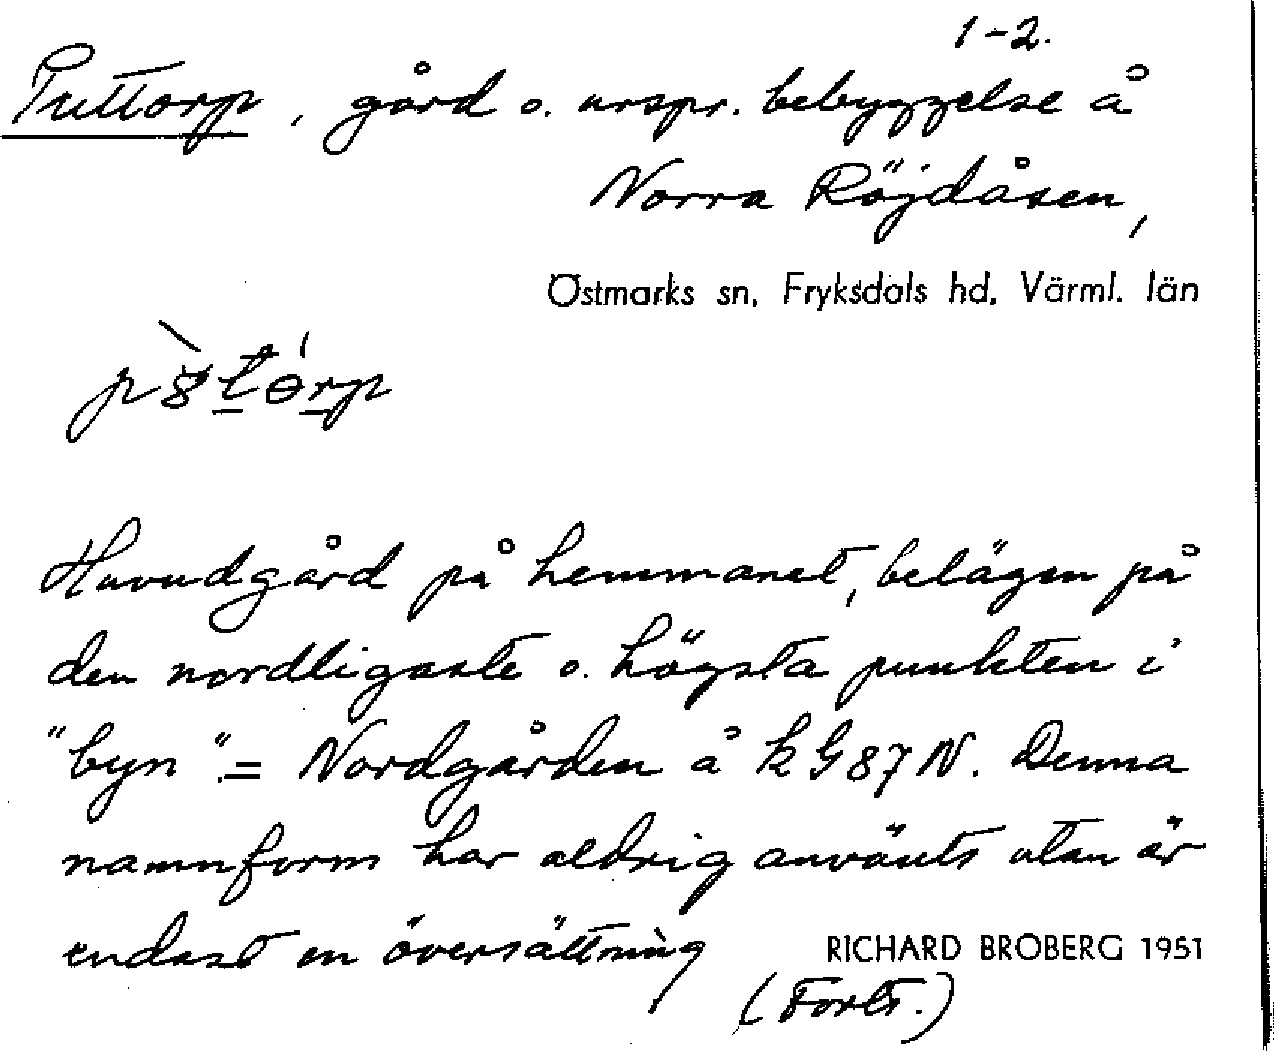 1-2.
Puttorp, gård o. urspr. bebyggelse å
Norra Röjdåsen,
Östmarks sn, Fryksdals hd, Värml. län
Huvudgård på hemmanet, belägen på
den nordligaste o. högsta punkten i
"byn". = Nordgården å k G87N. Denna
namnform har aldrig använts utan är
endast en översättning
RICHARD BROBERG 1951
(Forts.)